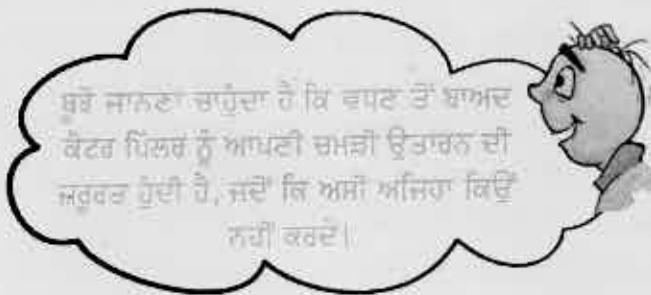 ਬੂਝੋ ਜਾਨਣਾ ਚਾਹੁੰਦਾ ਹੈ ਕਿ ਵਧਣ ਤੋਂ ਬਾਅਦ
ਕੈਟਰ ਪਿਲਰ ਨੂੰ ਆਪਣੀ ਚਮੜੀ ਉਤਾਰਨ ਦੀ
ਜ਼ਰੂਰਤ ਹੁੰਦੀ ਹੈ, ਜਦੋਂ ਕਿ ਅਸੀਂ ਅਜਿਹਾ ਕਿਉਂ
ਨਹੀਂ ਕਰਦੇ।